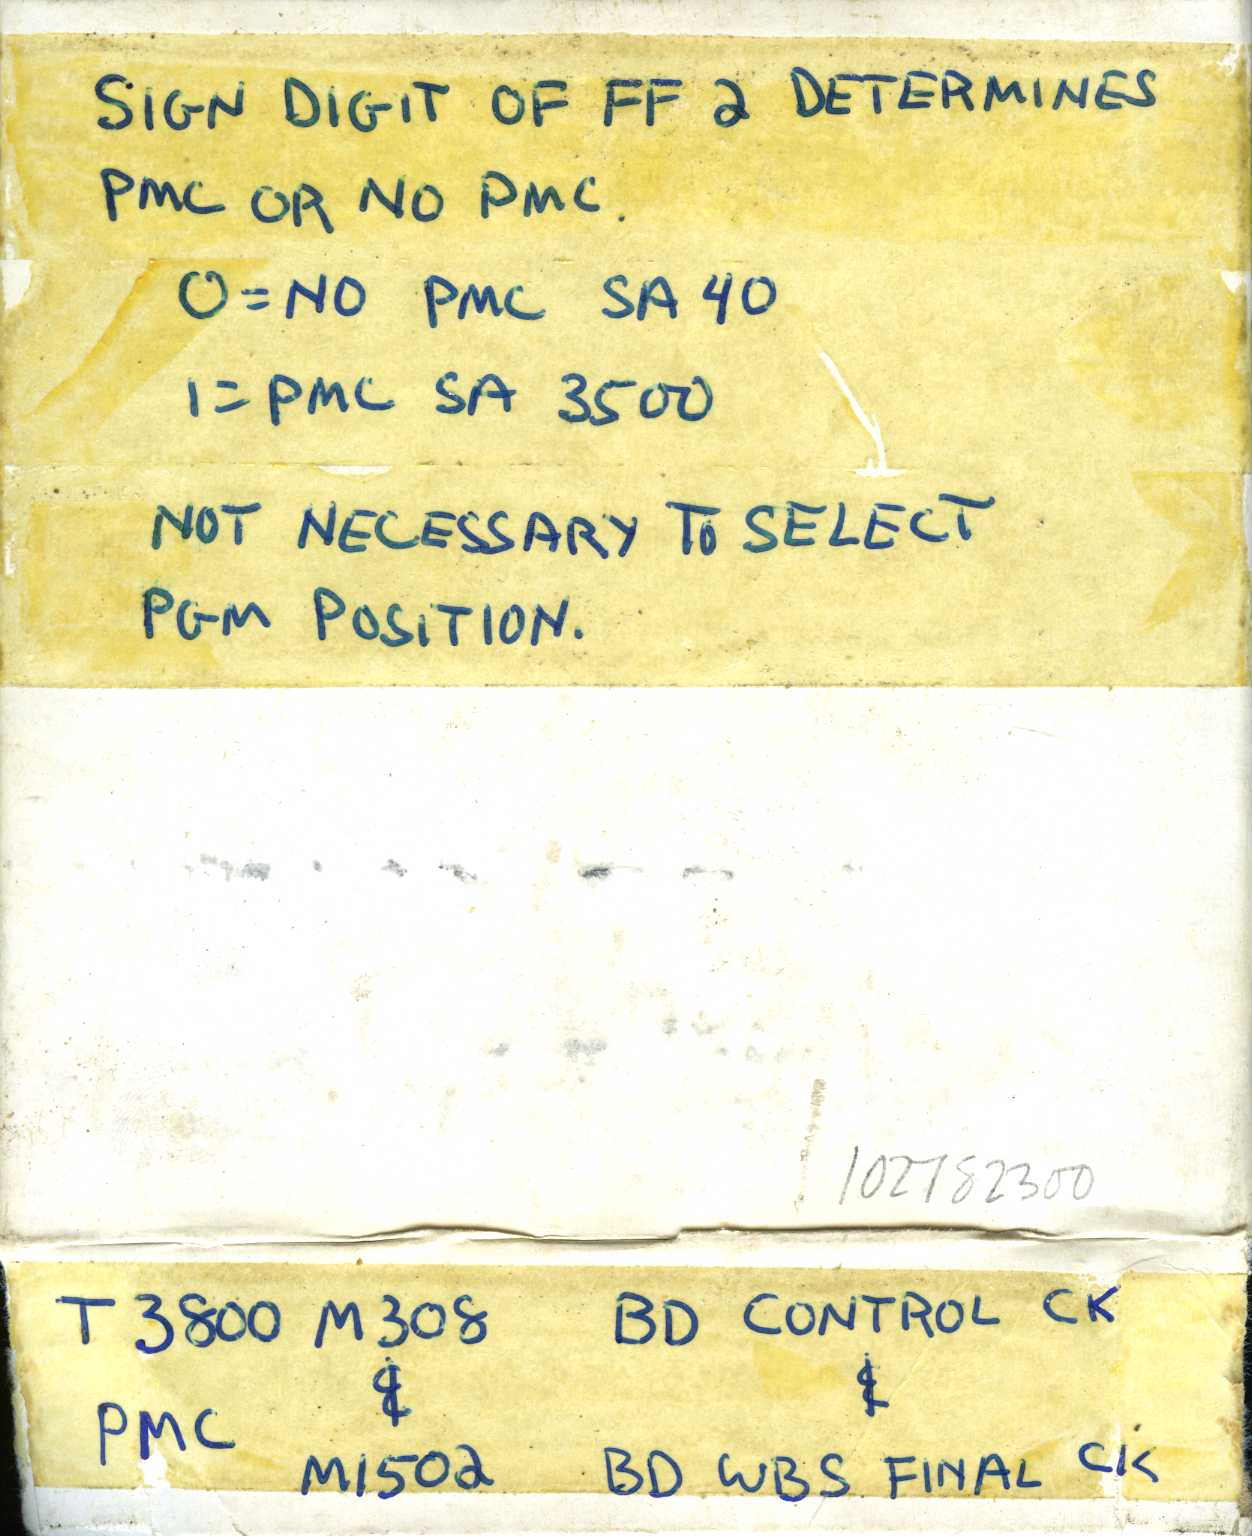 SIGN DIGIT OF FF 2 DETERMINES
PMC OR NO PMC.
0 = NO PMC SA 40
1 = PMC SA 3500
NOT NECESSARY TO SELECT
PGM POSITION.
102782300
T 3800 M308 BD CONTROL CK
& &
PMC
M1502 BD WBS FINAL CK